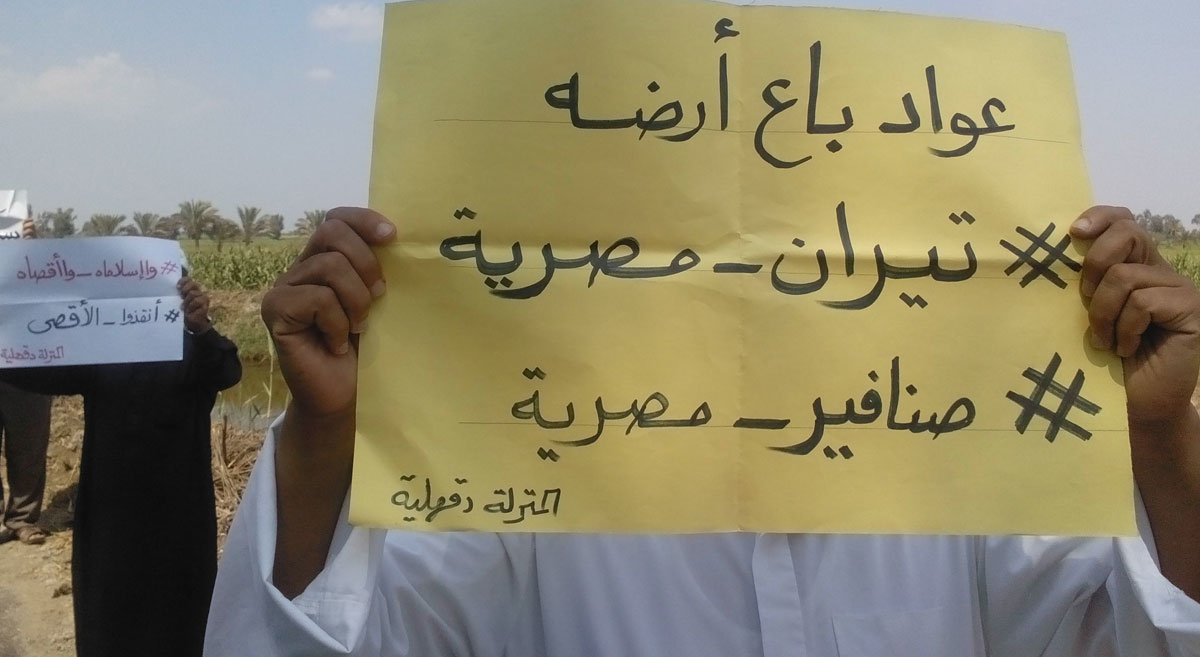 عواد باع أرضه
#تيران_مصرية
#صنافير_مصرية
المنزلة دقهلية
#واإسلاماه_واأقصاه
#أنقذوا_الأقصى
المنزلة دقهلية